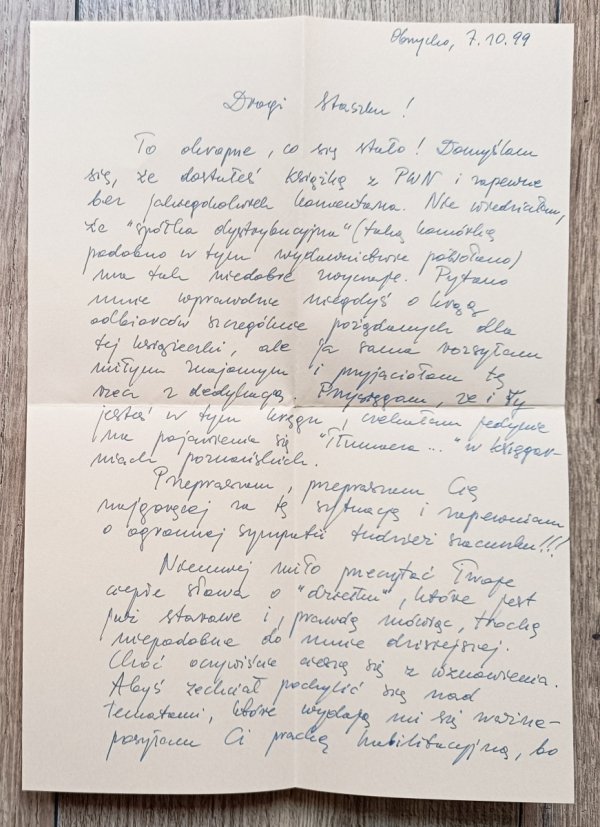 Obrzycko, 7.10.99
Drogi Staszku!
To okropne, co się stało! Domyślam
się, że dostałeś książkę z PWN i zapewne
bez jakiegokolwiek komentarza. Nie wiedziałam,
że "spółka dystrybucyjna" (taką komórkę
podobno w tym wydawnictwie powołano)
ma tak niedobre zwyczaje. Pytano
mnie wprawdzie niegdyś o krąg
odbiorców szczególnie pożądanych dla
tej książeczki, ale ja sama rozsyłam
miłym znajomym i przyjaciołom tę
rzecz z dedykacją. Przysięgam, że i Ty
jesteś w tym kręgu, czekałam jedynie
na pojawienia się "Tłumacza..." w księgar-
niach poznańskich.
Przepraszam, przepraszam Cię
najgoręcej za tę sytuację i zapewniam
o ogromnej sympatii tudzież szacunku!!!
Niemniej miło przeczytać Twoje
ciepłe słowa o "dziełku", które jest
już starawe i, prawdę mówiąc, trochę
niepodobne do mnie dzisiejszej.
Choć oczywiście cieszę się z wznowienia.
Abyś zechciał pochylić się nad
tematami, które wydają mi się ważne-
posyłam Ci pracę habilitacyjną, bo